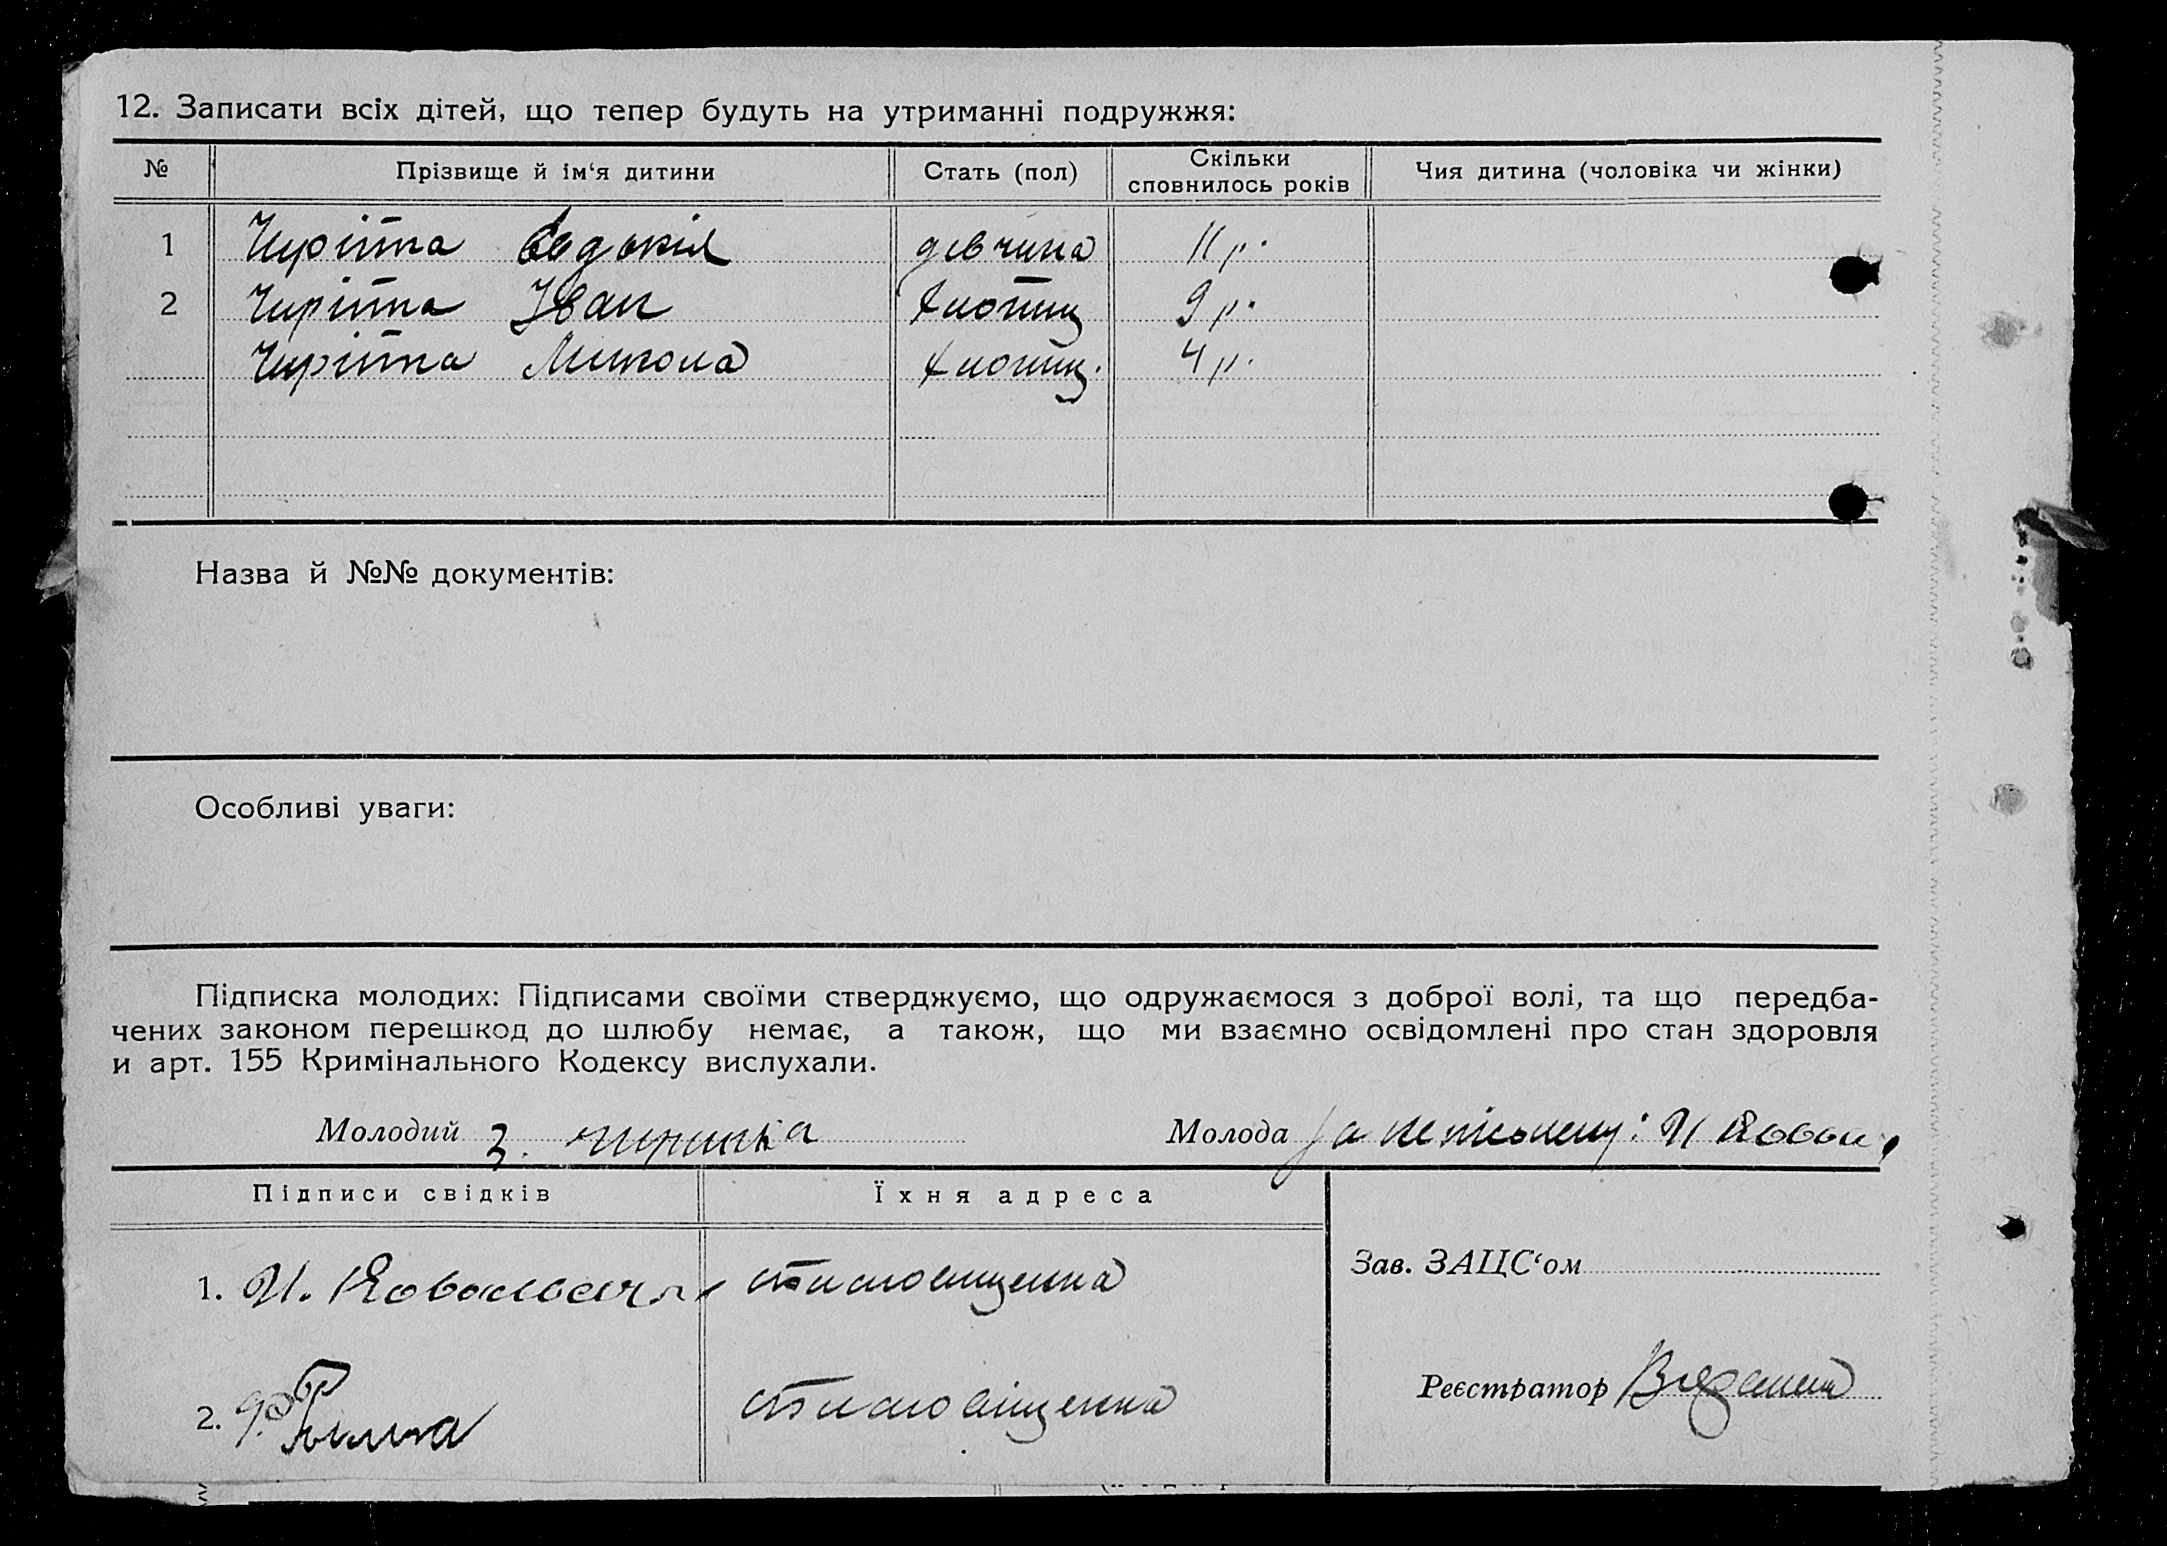 12. Записати всіх дітей, що тепер будуть на утриманні подружжя:
№ Прізвище й ім‘я дитини Стать (пол) Скільки сповнилось років Чия дитина (чоловіка чи жінки)
1 Чиріпа дівчина 11 р.
2 Чиріпа Іван хлопець 9 р.
Чиріпа Микола хлопець. 4 р.
Назва й №№ документів:
Особливі уваги:
Підписка молодих: Підписами своїми стверджуємо, що одружаємося з доброї волі, та що передба-
чених законом перешкод до шлюбу немає, а також, що ми взаємно освідомлені про стан здоровля
и арт. 155 Кримінального Кодексу вислухали.
Молодий Молода За неписьмену: И Ковал
Підписи свідків Їхня адреса
1. И. Ковальчук
Зав. ЗАЦС‘ом
Реєстратор
2.